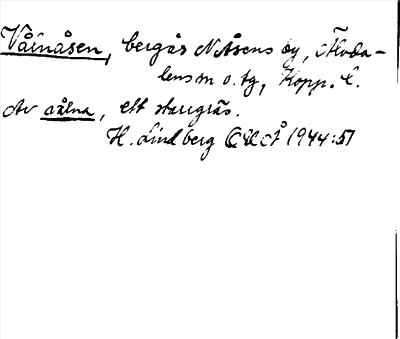 Vålnåsen, bergås N Åsens by, Älvda-
lens sn o. tg, Kopp. l.
Av vålna, ett starrgräs.
H. Lindberg OUÅ 1944:51